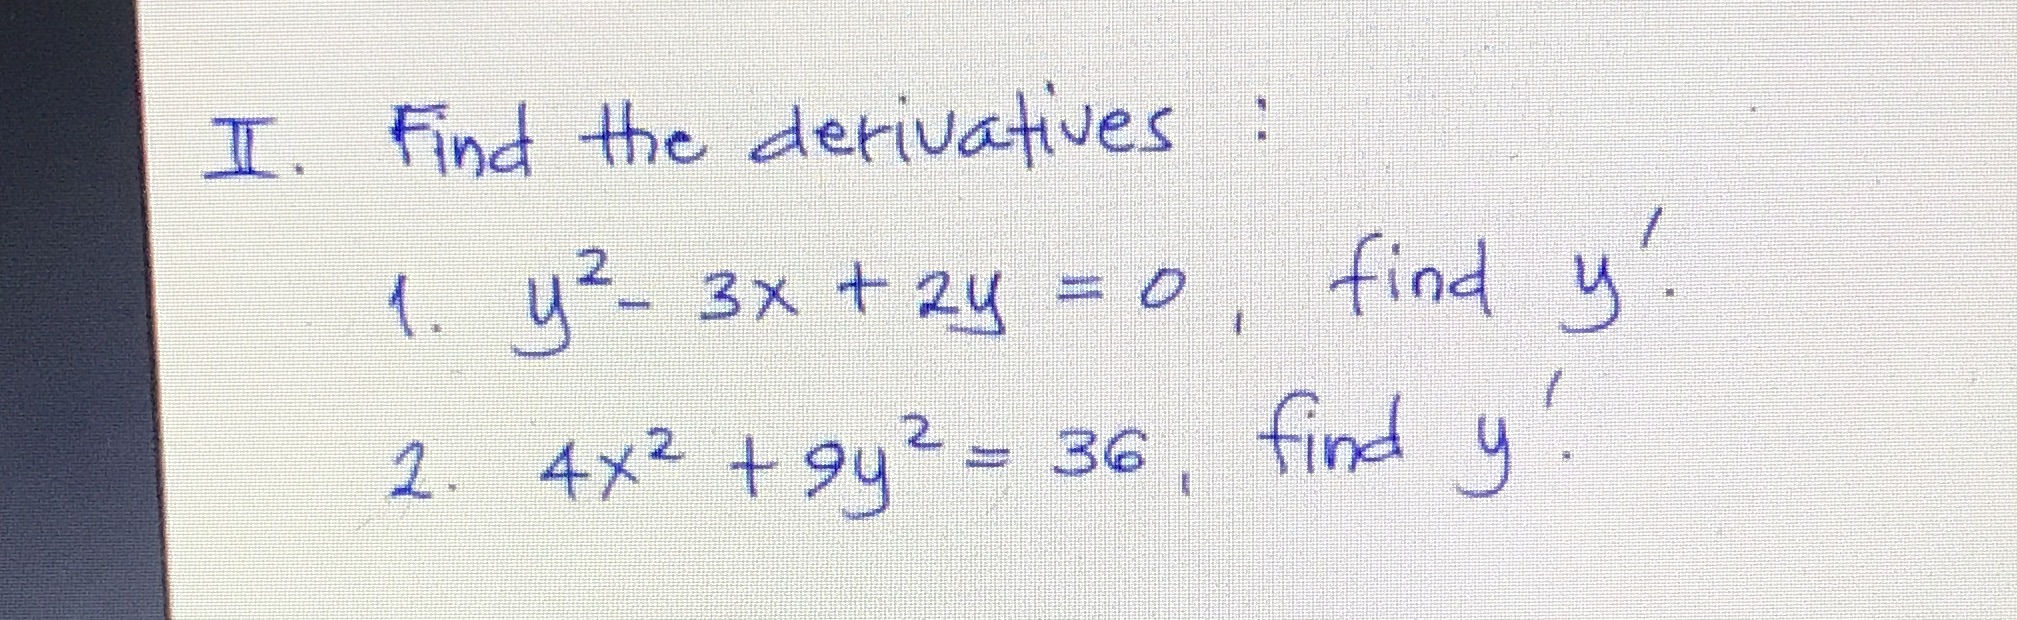 II. Find the derivatives :
1. y² - 3x + 2y = 0, find y'.
2. 4x² + 9y² = 36, find y'.